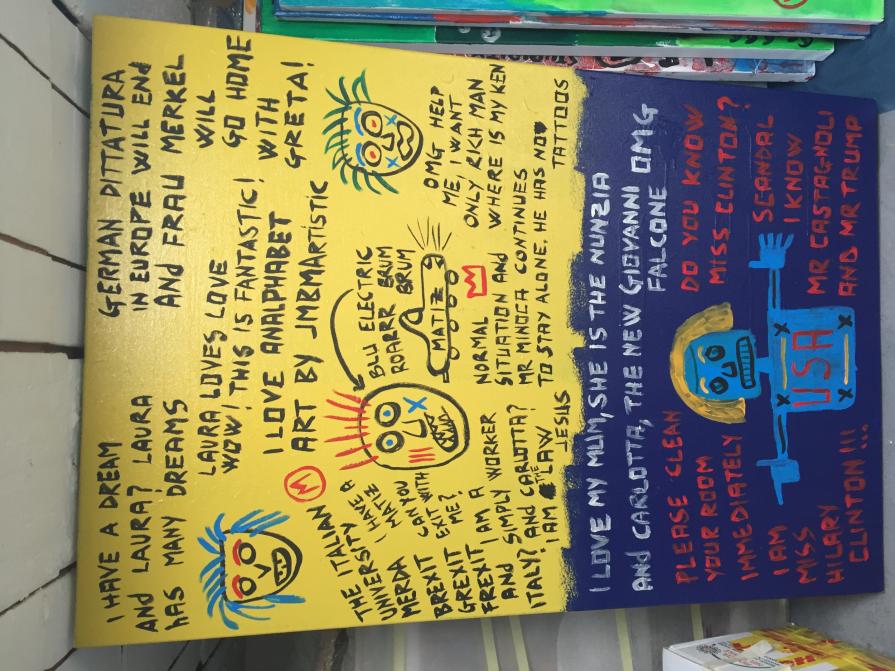 I HAVE A DREAM
AND LAURA? LAURA
HAS MANY DREAMS
GERMAN DITTATURA
IN EUROPE WILL END
AND FRAU MERKEL
WILL
GO HOME
WITH
GRETA!
LAURA LOVES LOVE
WOW! THIS IS FANTASTIC!
I LOVE ANALPHABET
ART BY JMBMARTISTIC
M
THE ITALIAN
UNIVERSITY
MERDA
BREXIT
GREXIT
FREXIT
AND
ITALY?
I HAVE A
MATIZ
CAN YOU
EXIT WITH
ME?
AM A
SIMPLY WORKER
AND CARLOTTA?
I AM THE LAW
JESUS
BLU ELECTRIC
ROARRR BRUM
BRUM
MATIZ
OMG HELP
ME, I WANT
ONLY RICH MAN
WHERE IS MY KEN
NORMAL
SITUATION AND
MR MINOCA CONTINUES
TO STAY ALONE. HE HAS NO
TATTOOS
I LOVE MY MUM, SHE IS THE NUNZIA
AND CARLOTTA, THE NEW GIOVANNI OMG
FALCONE
PLEASE CLEAN
YOUR ROOM
IMMEDIATELY
I AM
MISS
HILARY
CLINTON!!!
USA
DO YOU KNOW
MISS CLINTON?
SCANDAL
I KNOW
MR CASTAGNOLI
AND MR TRUMP